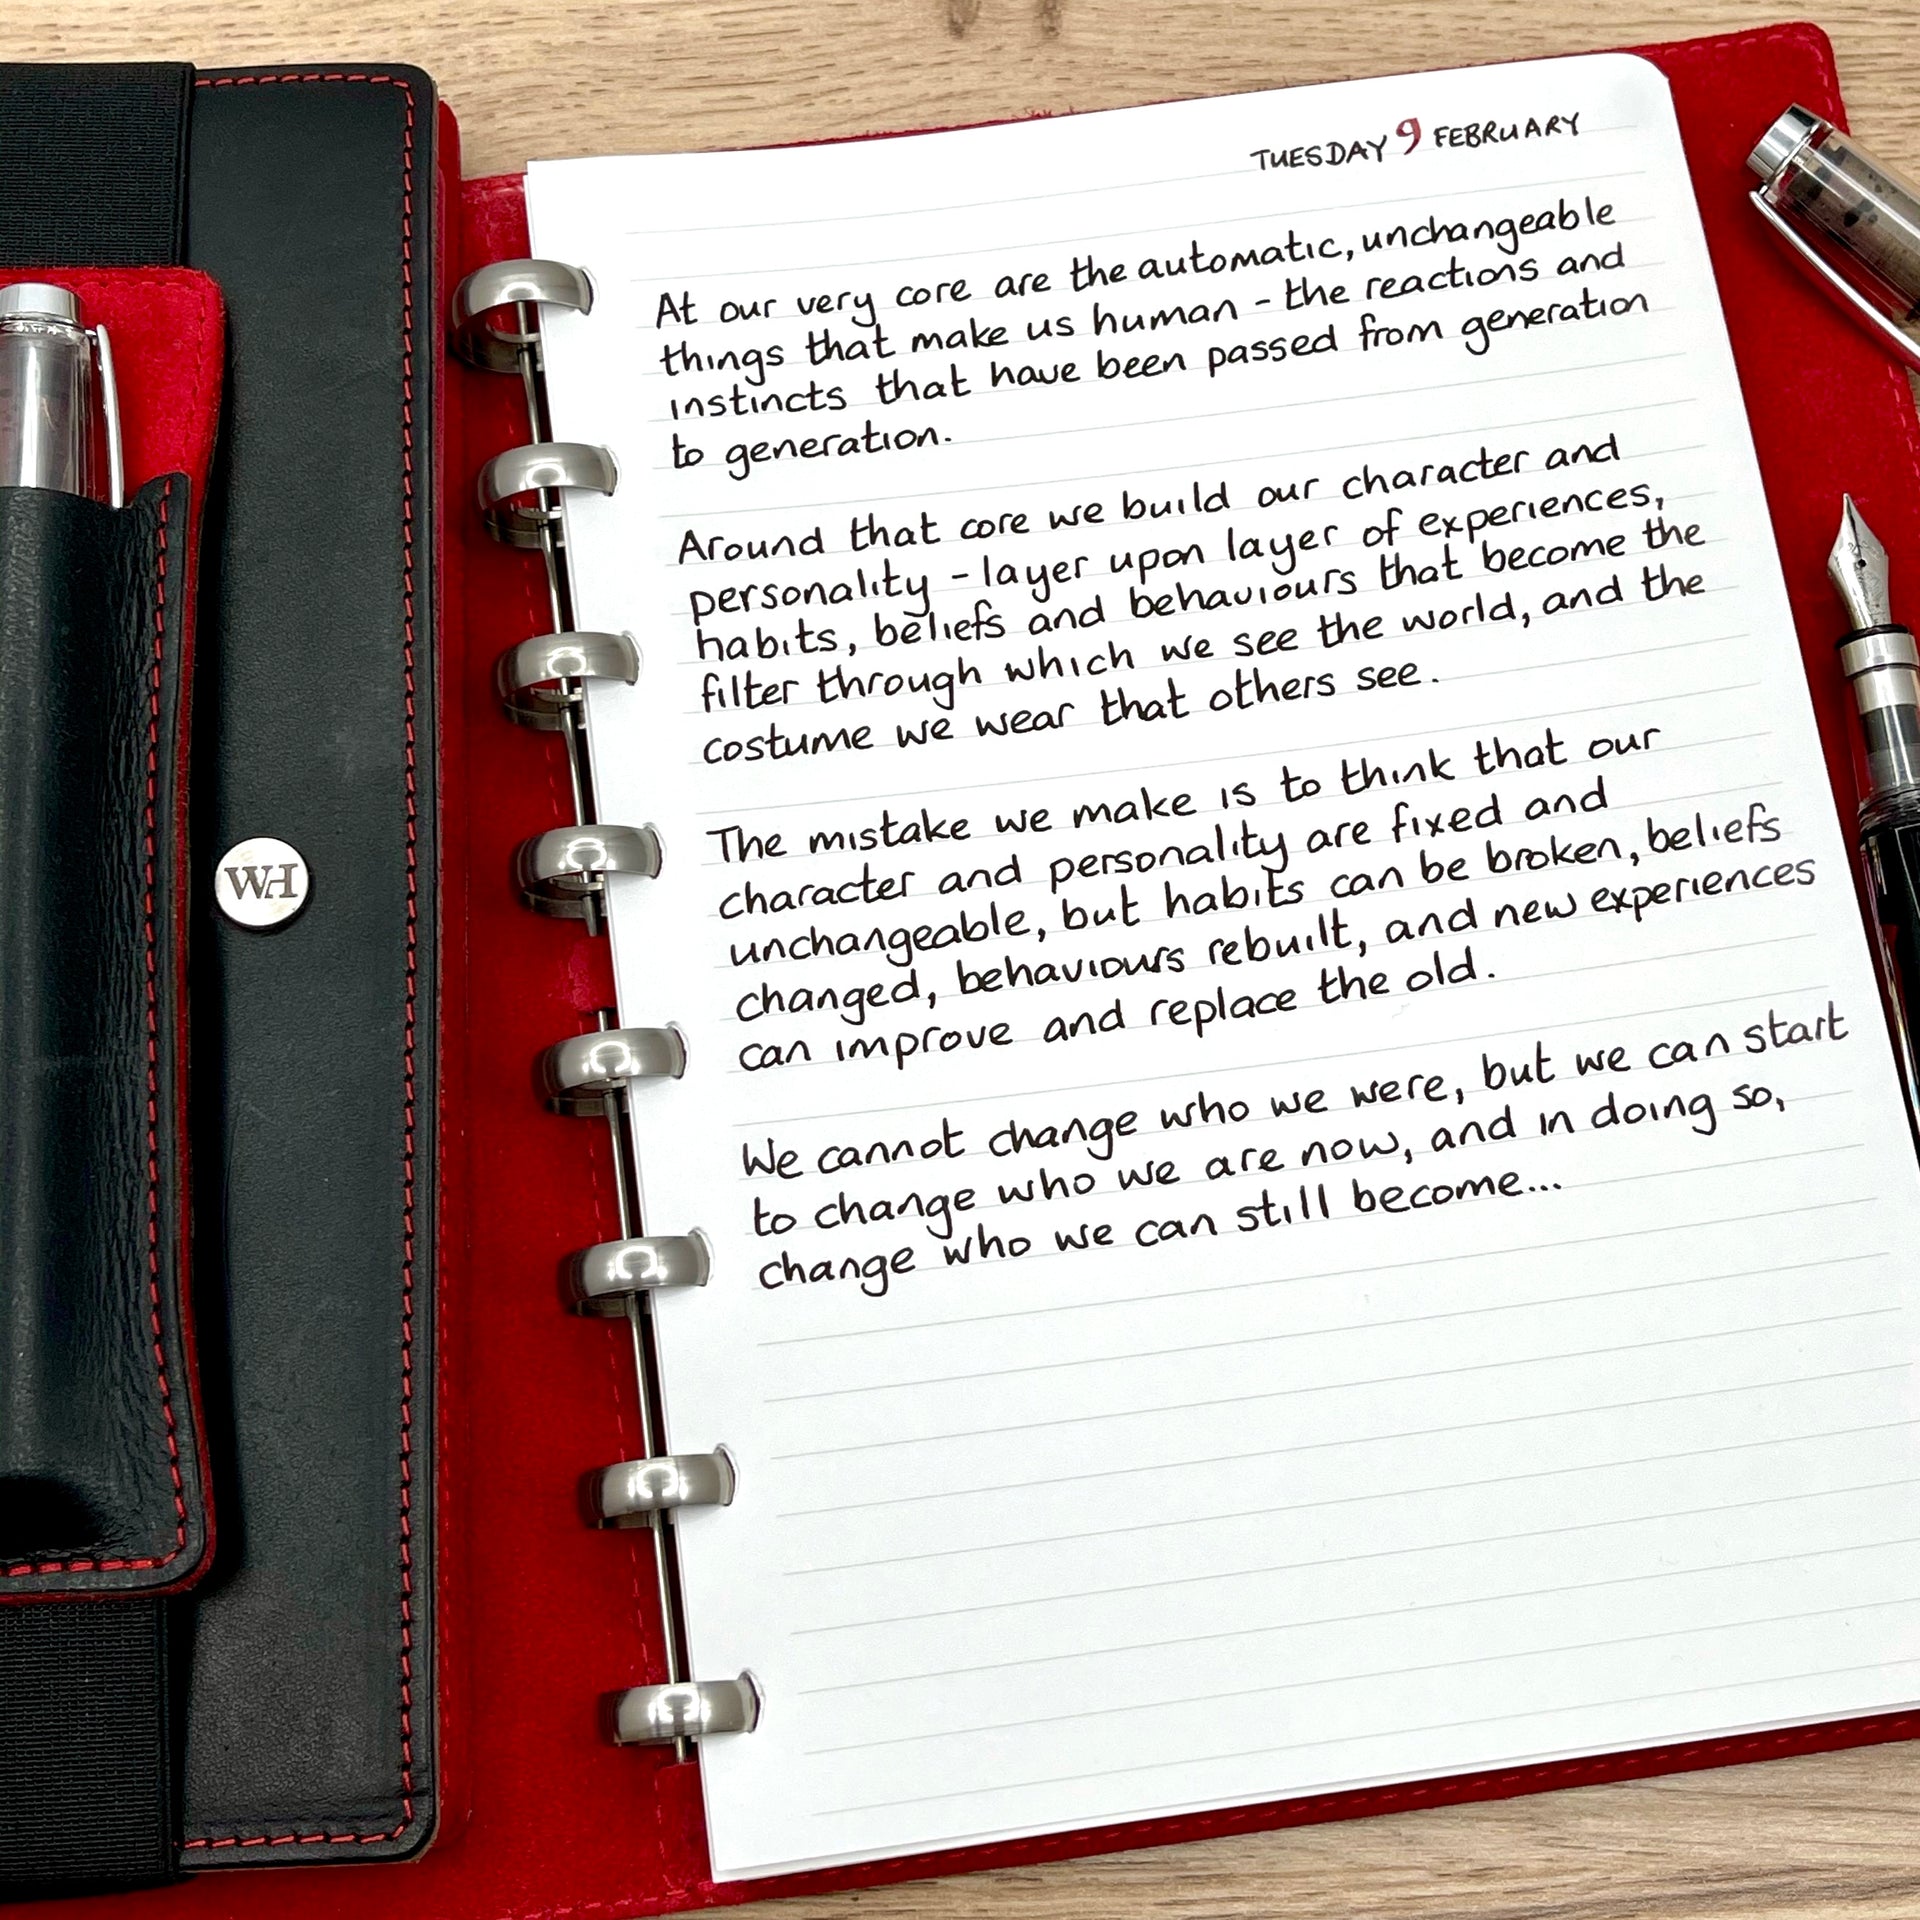 TUESDAY 9 FEBRUARY
At our very core are the automatic, unchangeable
things that make us human - the reactions and
instincts that have been passed from generation
to generation.
Around that core we build our character and
personality - layer upon layer of experiences,
habits, beliefs and behaviours that become the
filter through which we see the world, and the
costume we wear that others see.
The mistake we make is to think that our
character and personality are fixed and
unchangeable, but habits can be broken, beliefs
changed, behaviours rebuilt, and new experiences
can improve and replace the old.
We cannot change who we were, but we can start
to change who we are now, and in doing so,
change who we can still become...
WH